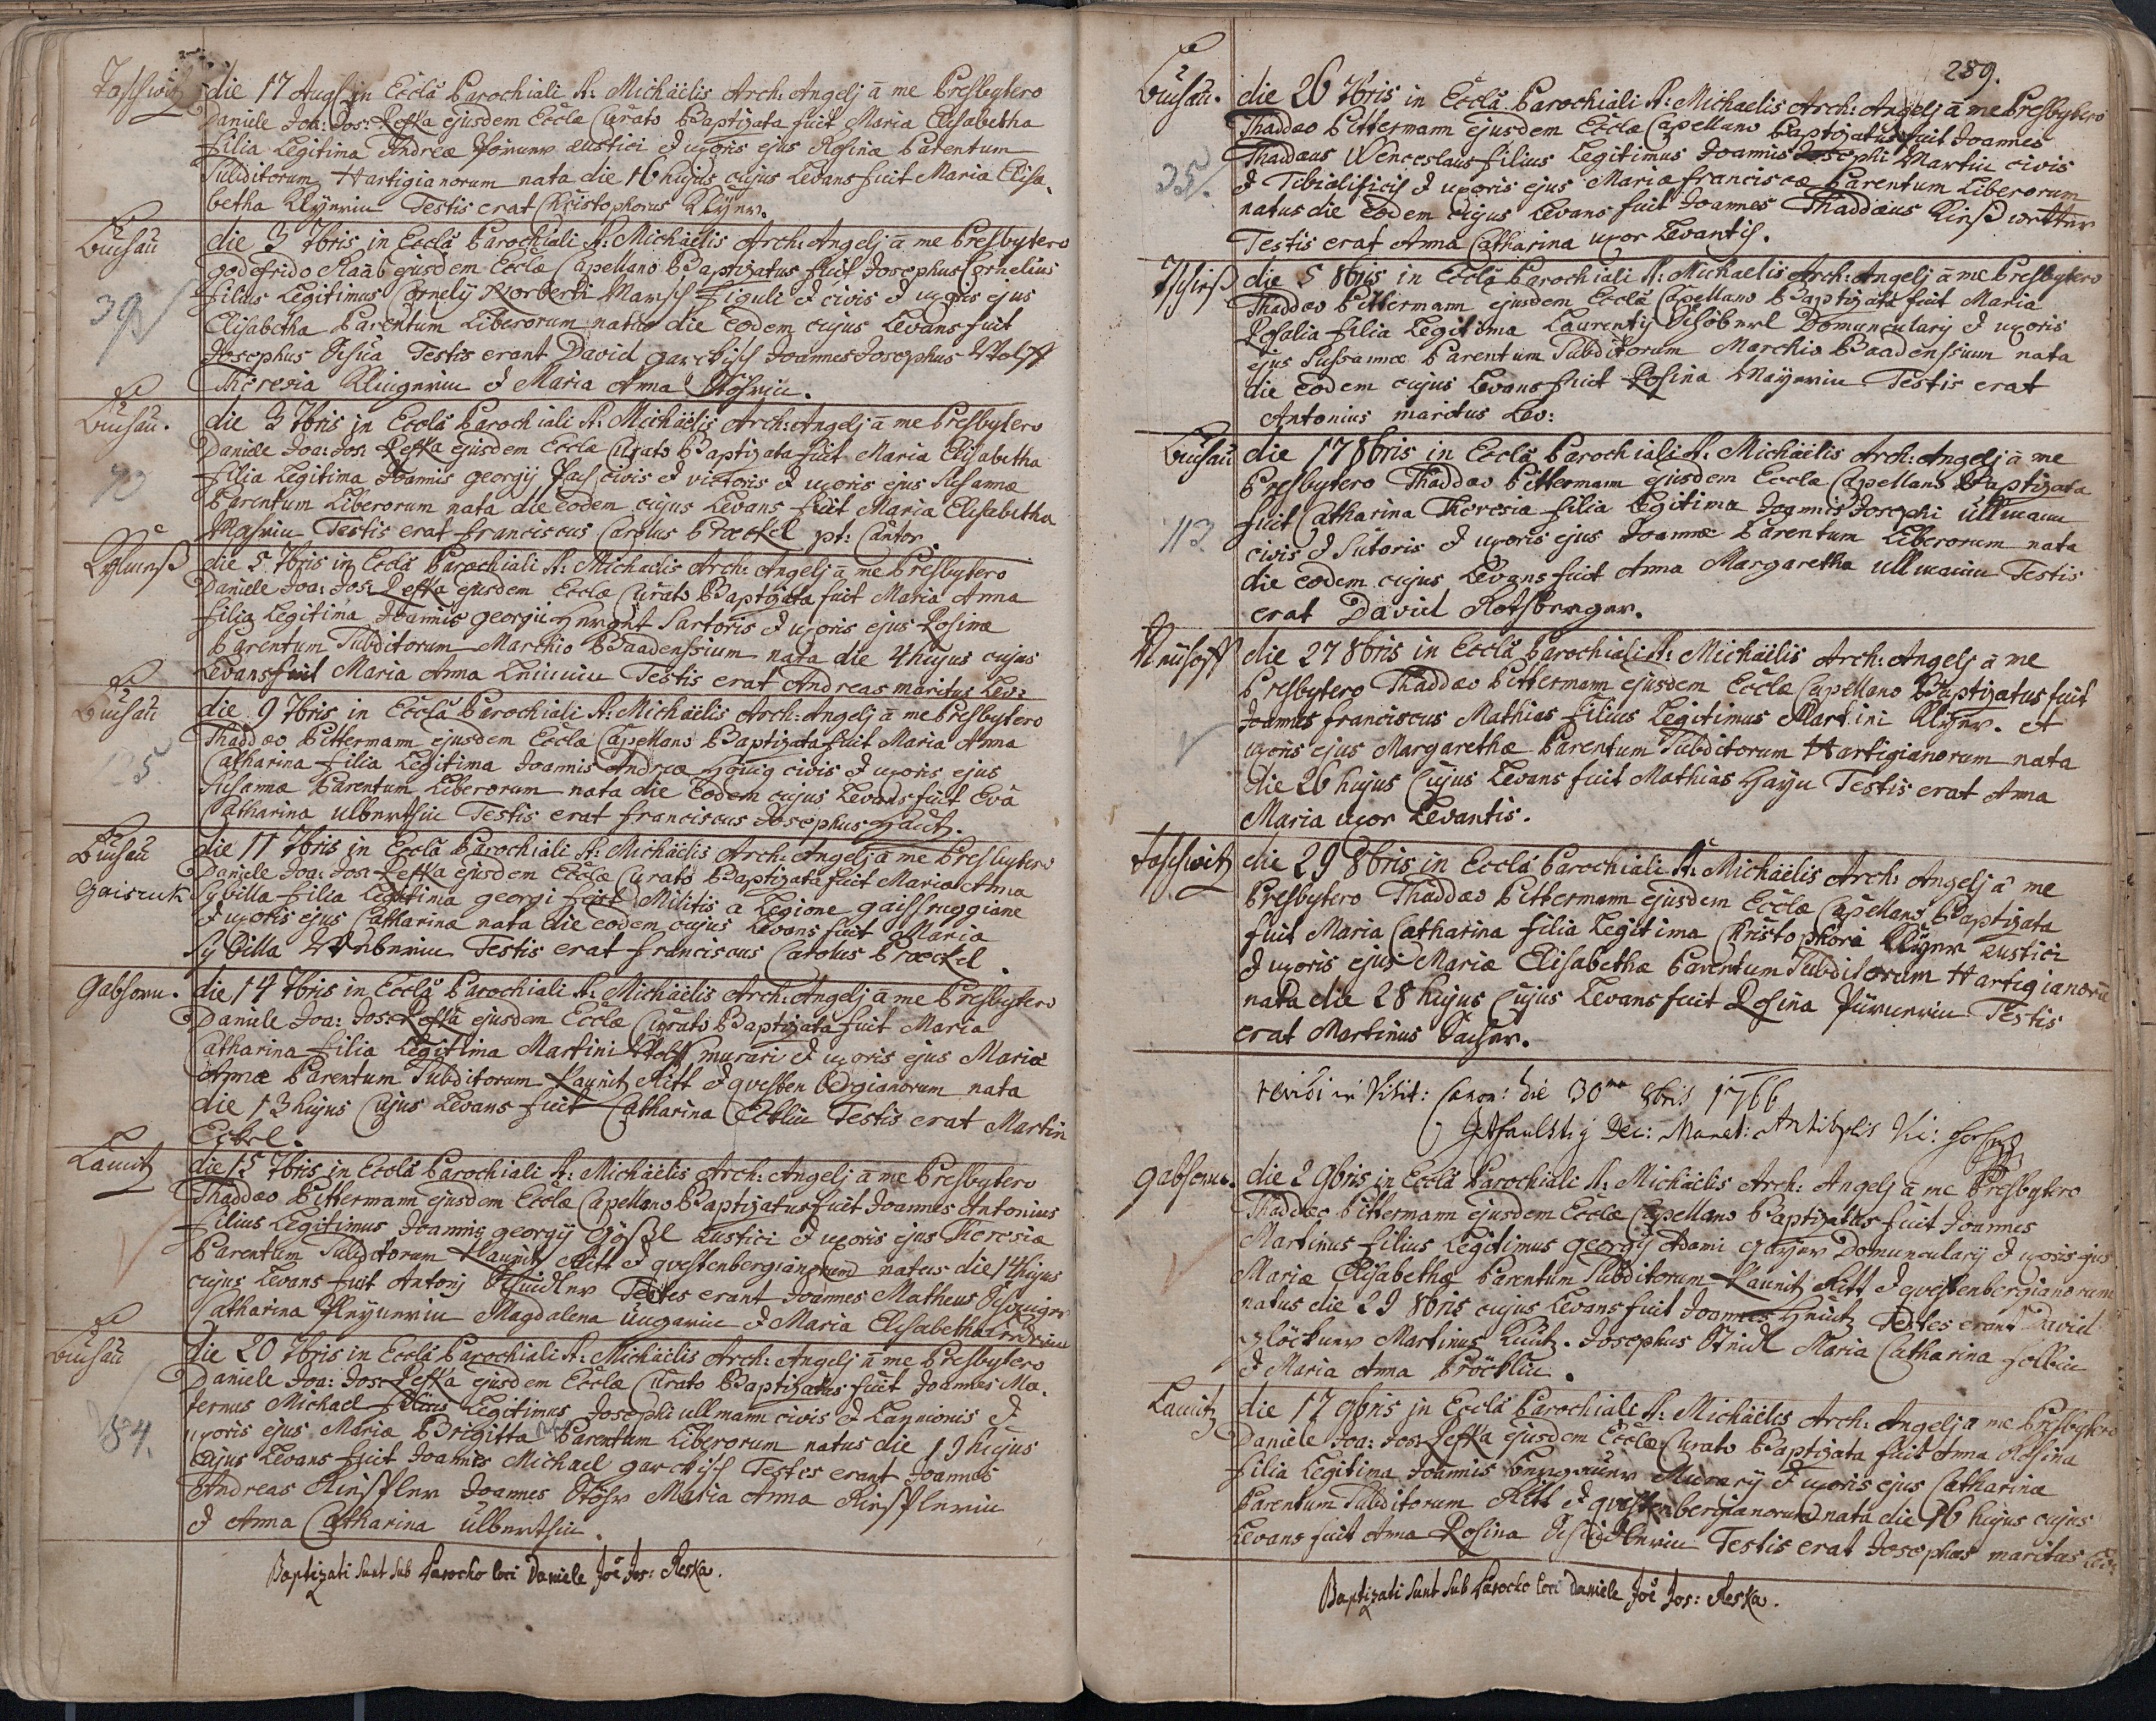 Taschwitz
die 17 Augs in Eccla Parochiali S: Michäelis Arch: Angelj ā me Presbytero
Daniele Joa: Jos: Reska ejusdem Eccla Curato Baptizata fuit Maria Elisabetha
filia Legitima Andreæ rustici & uxoris ejus Rosinæ Parentum
Subditorum Hartigianorum nata die 16 hujus cujus Levans fuit Maria Elisa,
betha Testis erat Christophorus
Luchau
39
die 3 7bris in Eccla Parochiali S: Michäelis Arch: Angelj ā me Presbytero
godefrido Raab ejusdem Eccla Capellano Baptizatus fuit Josephus Cornelius
filius Legitimus Cornelij Norberti Figuli & civis & uxoris ejus
Elisabetha Parentum Liberorum natus die eodem cujus Levans fuit
Josephus Testis erant David Joannes Josephus Wolff
Theresia Klingerin & Maria Anna
Luchau.
70
die 3 7bris in Eccla Parochiali S: Michäelis Arch: Angelj ā me Presbytero
Daniele Joa: Jos: Reska ejusdem Eccla Curato Baptizata fuit Maria Elisabetha
filia Legitima Joannis georgij civis & victoris & uxoris ejus Susannæ
Parentum Liberorum nata die eodem cujus Levans fuit Maria Elisabetha
Testis erat franciscus Carolus Præckel pt: Cantor.
die 5 7bris in Eccla Parochiali S: Michaelis Arch: Angelj ā me Presbytero
Daniele Joa: Jos: Reska ejusdem Eccla Curato Baptizata fuit Maria Anna
filia Legitima Joannis georgii Sartoris & uxoris ejus Rosinæ
Parentum Subditorum Marchio Baadensium nata die 4 hujus cujus
Levans fuit Maria Anna Testis erat Andreas maritus Lev:
Luchau
125
die 9 7bris in Eccla Parochiali S: Michäelis Arch: Angelj ā me Presbytero
Thaddæo Pittermann ejusdem Eccla Capellano Baptizata fuit Maria Anna
Catharina filia Legitima Joannis Andreæ Hönig civis & uxoris ejus
Susannæ Parentum Liberorum nata die Eodem cujus Levans fuit Eva
Catharina Ulbertsin Testis erat franciscus Josephus
Luchau
Gaisruk
die 11 7bris in Eccla Parochiali S: Michäelis Arch: Angelj ā me Presbytero
Daniele Joa: Jos: Reska ejusdem Eccla Curato Baptizata fuit Maria Anna
Sybilla filia Legitima georgi Militis a Legione gaissruggiane
& uxoris ejus Catharinæ nata die eodem cujus Levans fuit Maria
Sybilla Testis erat franciscus Carolus Præckel.
gabhorn.
die 14 7bris in Eccla Parochiali S: Michäelis Arch: Angelj ā me Presbytero
Daniele Joa: Jos: Reska ejusdem Eccla Curato Baptizata fuit Maria
Catharina filia Legitima Martini Wolf murari & uxoris ejus Mariæ
Annæ Parentum Subditorum Kaunitz Ritt & qvestenbergianorum nata
die 13 hujus Cujus Levans fuit Catharina Testis erat Martin
Eckel.
Lamitz
die 15 7bris in Eccla Parochiali S: Michäelis Arch: Angelj ā me Presbytero
Thaddæo Pittermann ejusdem Eccla Capellano Baptizatus fuit Joannes Antonius
filius Legitimus Joannis georgij Gößl Rustici & uxoris ejus Theresiæ
Parentum Subditorum Kaunitz Ritt & qvestenbergianorum natus die 14 hujus
cujus Levans fuit Antonj Testes erant Joannes Matheus
Catharina Magdalena Ungarin & Maria Elisabetha
Luchau
84.
die 20 7bris in Eccla Parochiali S: Michäelis Arch: Angelj ā me Presbytero
Daniele Joa: Jos: Reska ejusdem Eccla Curato Baptizatus fuit Joannes Ma,
ternus Michael filius Legitimus Josephi ullmann civis & Lannionis &
uxoris ejus Mariæ Brigitta Parentum Liberorum natus die 19 hujus
Cujus Levans fuit Joannes Michael Testes erant Joannes
Andreas Joannes Stöhr Maria Anna
& Anna Catharina Ulbertsin.
Baptizati sunt sub Parocho loci Daniele Joē Jos: Reska.
289.
Luchau.
35
die 26 7bris in Eccla Parochiali S: Michaelis Arch: Angelj ā me Presbytero
Thaddæo Pittermann ejusdem Eccla Capellano Baptizatus fuit Joannes
Thaddæus Wenceslaus filius Legitimus Joannis Josephi Martin civis
& Tibialificis & uxoris ejus Mariæ franciscæ Parentum Liberorum
natus die Eodem cujus Levans fuit Joannes Thaddæus
Testis erat Anna Catharina uxor Levantis.
die 5 8bris in Eccla Parochiali S: Michaelis Arch: Angelj ā me Presbytero
Thaddæo Pittermann ejusdem Eccla Capellano Baptizata fuit Maria
Rosalia filia Legitima Laurentij Domuncularij & uxoris
ejus Sussannæ Parentum Subditorum Marchio Baadensium nata
die Eodem cujus Levans fuit Rosina Mayerin Testis erat
Antonius maritus Lev:
Luchau
113.
die 17 8bris in Eccla Parochiali S: Michäelis Arch: Angelj ā me
Presbytero Thaddæo Pittermann ejusdem Eccla Capellano Baptizata
fuit Catharina Theresia filia Legitima Joannis Josephi Ullmann
civis & Sutoris & uxoris ejus Joannæ Parentum Liberorum nata
die eodem cujus Levans fuit Anna Margaretha ullmanin Testis
erat David Rothberger.
Neuhoff
die 27 8bris in Eccla Parochiali S: Michäelis Arch: Angelj ā me
Presbytero Thaddæo Pittermann ejusdem Eccla Capellano Baptizatus fuit
Joannes franciscus Mathias filius Legitimus Martini et
uxoris ejus Margarethæ Parentum Subditorum Hartigianorum nata
die 26 hujus Cujus Levans fuit Mathias Testis erat Anna
Maria uxor Levantis.
Taschwitz
die 29 8bris in Eccla Parochiali S: Michäelis Arch: Angelj ā me
Presbytero Thaddæo Pittermann ejusdem Eccla Capellano Baptizata
fuit Maria Catharina filia Legitima Christophori rustici
& uxoris ejus Mariæ Elisabethæ Parentum Subditorum Hartigianorū
nata die 28 hujus Cujus Levans fuit Rosina Testis
erat Martinus
revidi in Visit: Canon: die 30ma 8bris 1766
gabhorn.
die 2 9bris in Eccla Parochiali S: Michäelis Arch: Angelj ā me Presbytero
Thaddæo Pittermann ejusdem Eccla Capellano Baptizatus fuit Joannes
Martinus filius Legitimus georgij Adami Domuncularij & uxoris ejus
Mariæ Elisabethæ Parentum Subditorum Kaunitz Ritt & qvestenbergianorum
natus die 29 8bris cujus Levans fuit Joannes Testes erant David
Martinus Josephus Maria Catharina
& Maria Anna Pröcklin.
Lamitz
die 17 9bris in Eccla Parochiali S: Michäelis Arch: Angelj ā me Presbytero
Daniele Joa: Jos: Reska ejusdem Eccla Curato Baptizata fuit Anna Rosina
filia Legitima Joannis Murarij & uxoris ejus Catharinæ
Parentum Subditorum Ritt & qvestenbergianorum nata die 16 hujus cujus
Levans fuit Anna Rosina Testis erat Josephus maritus
Baptizati sunt sub Parocho loci Daniele Joē Jos: Reska.